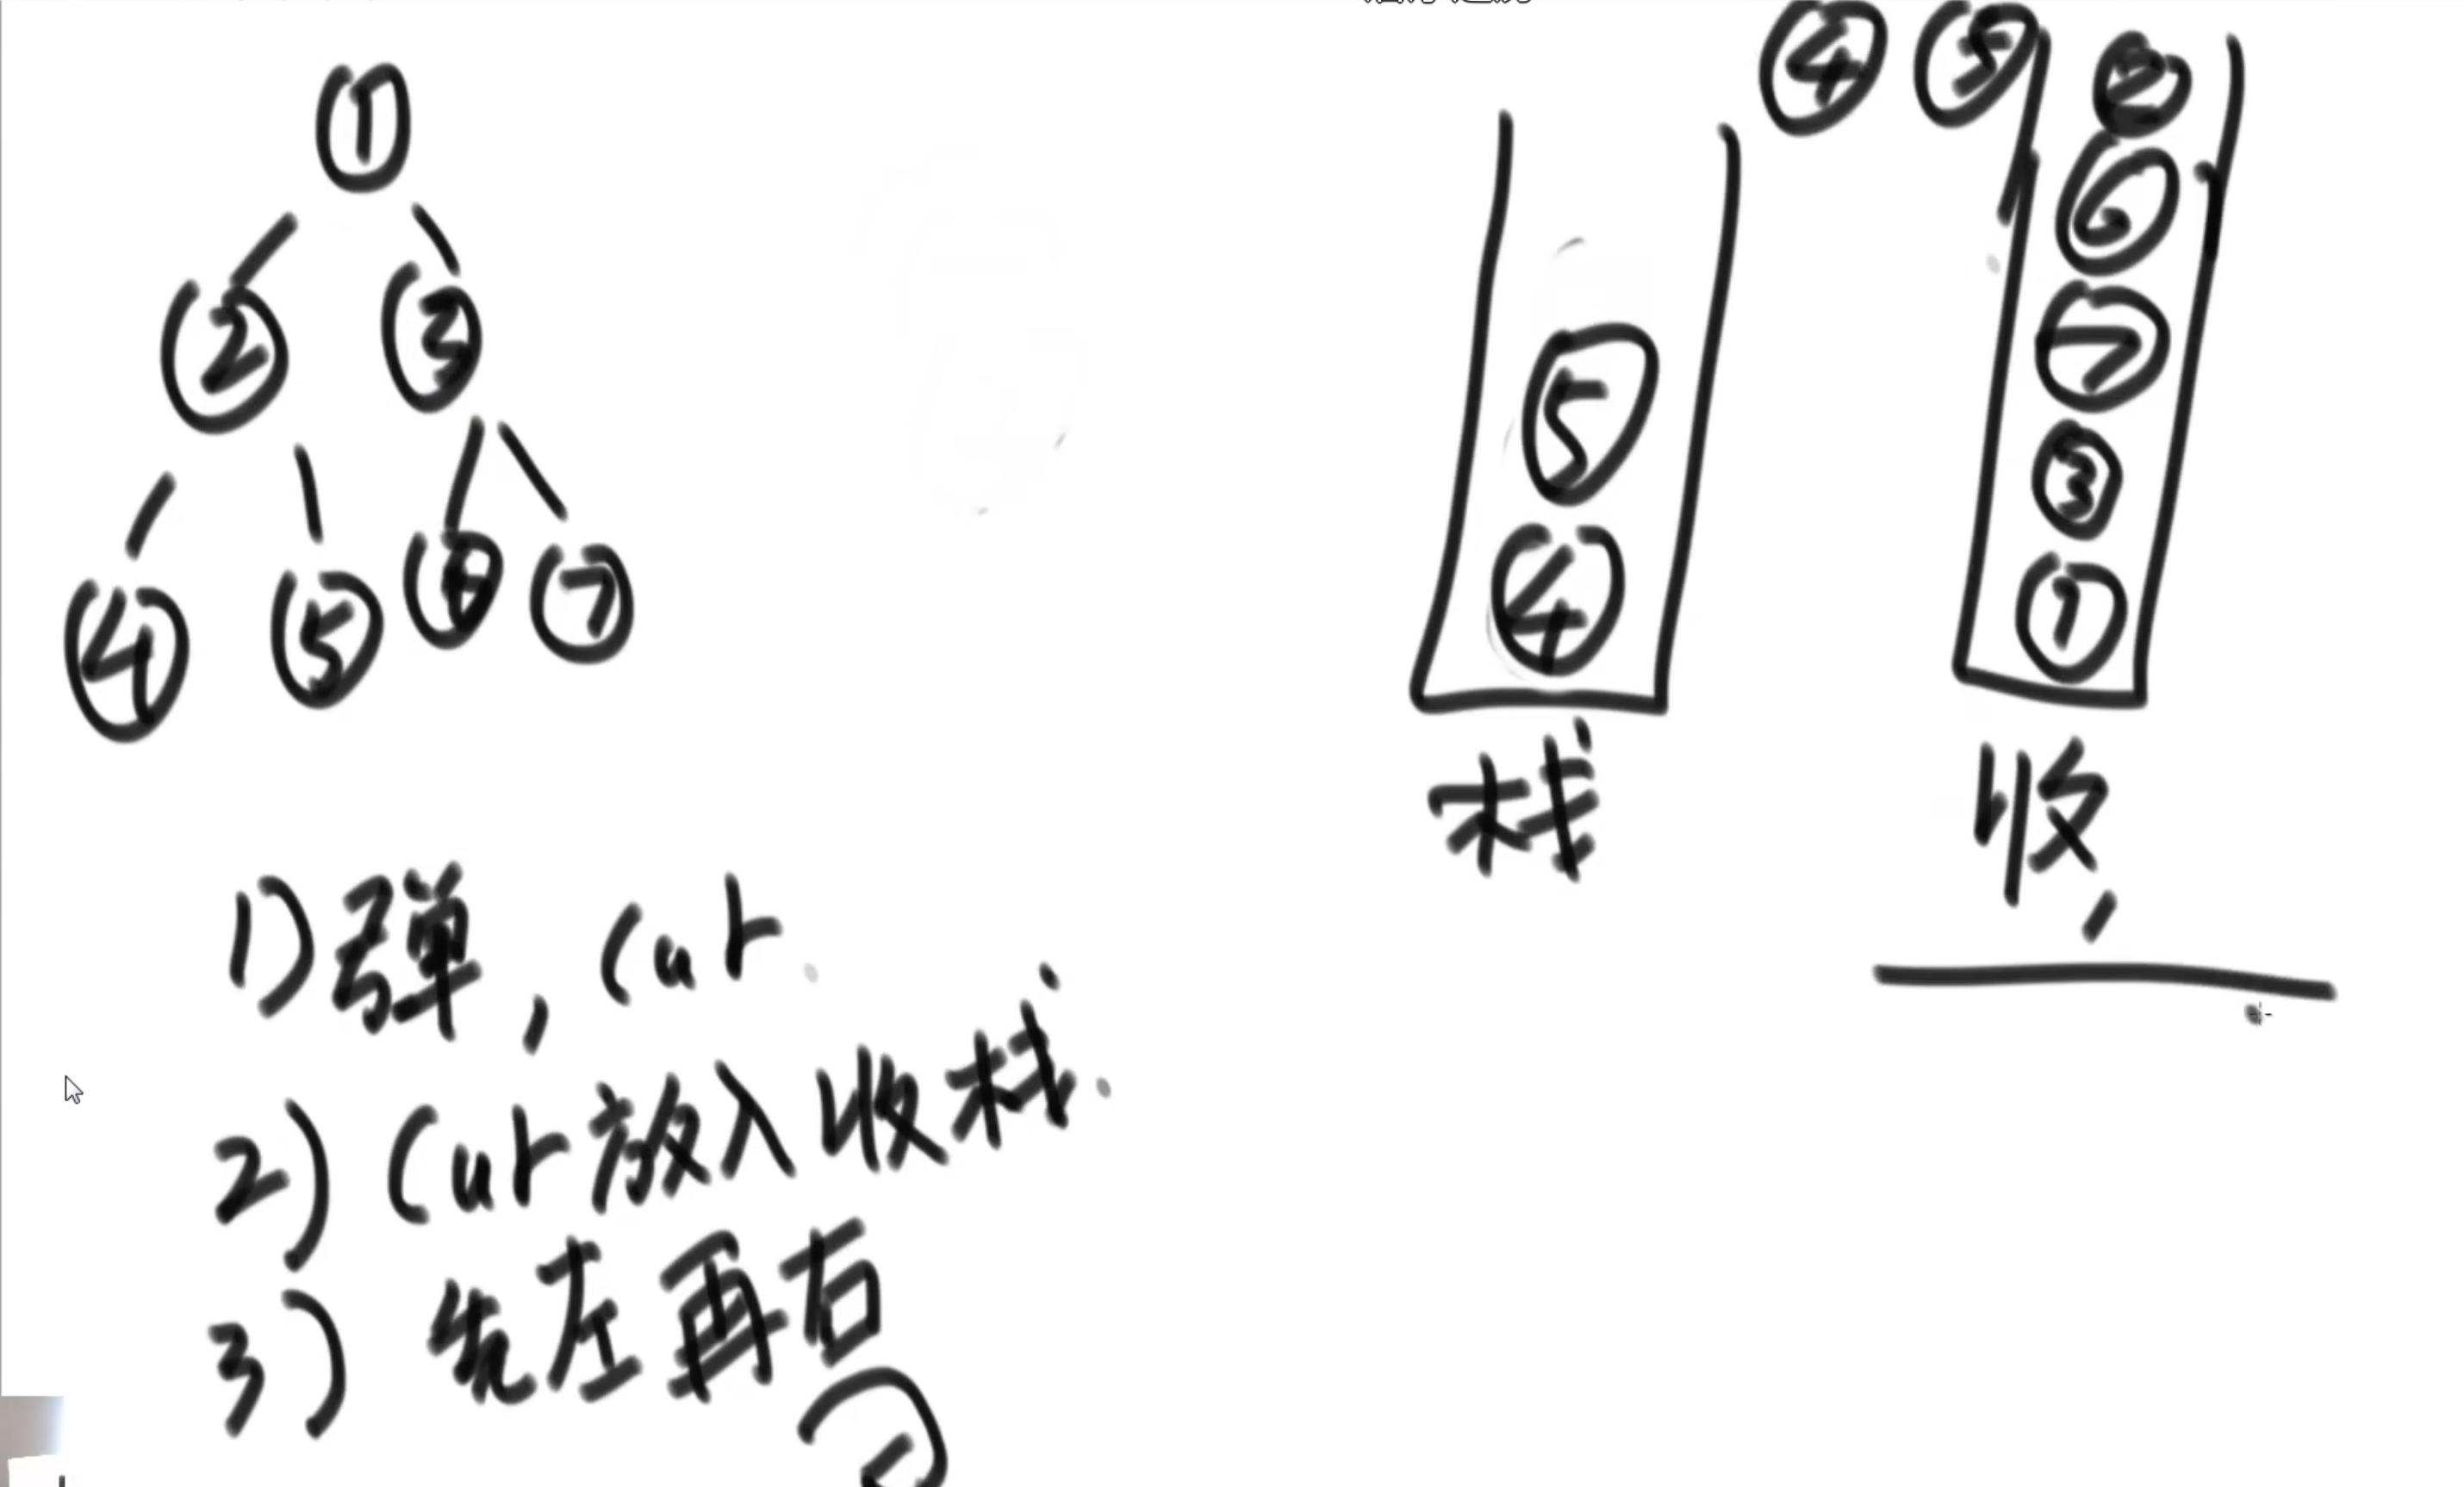 ①
② ③
④ ⑤ ⑦
④ ⑤ ②
⑥
⑦
③
①
⑤
④
栈 收,
1) 弹, cur.
2) cur放入收栈.
3) 先左再右